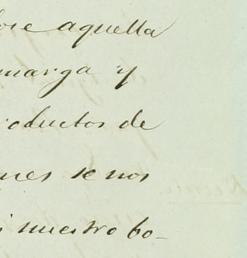 aquella
marga y
roductos de
nes se nos
i nuestro bo-